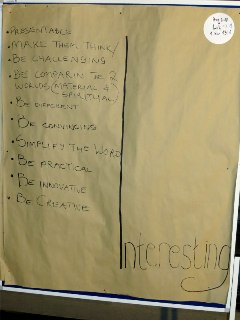 • PRESENTABLE
• MAKE THEM THINK/
• BE CHALLENGING
• BE COMPARIN THE 2
WORLDS (MATERIAL &
SPIRITUAL)
• BE DIFFERENT
• BE CONVINCING
• SIMPLIFY THE WORD
• BE PRACTICAL
• BE INNOVATIVE
• BE CREATIVE
Interesting